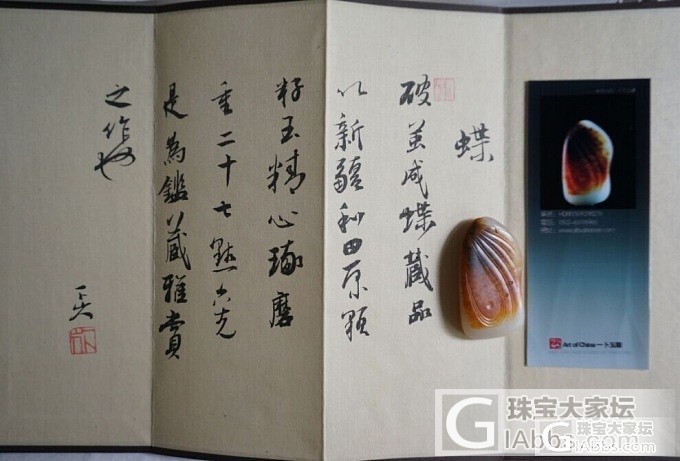 蝶
破茧成蝶藏品
以新疆和田原顆
籽玉精心琢磨
重二十七點六克
是為鑑藏雅賞
之作也
Art of China 一卜玉雕
珠宝大家坛